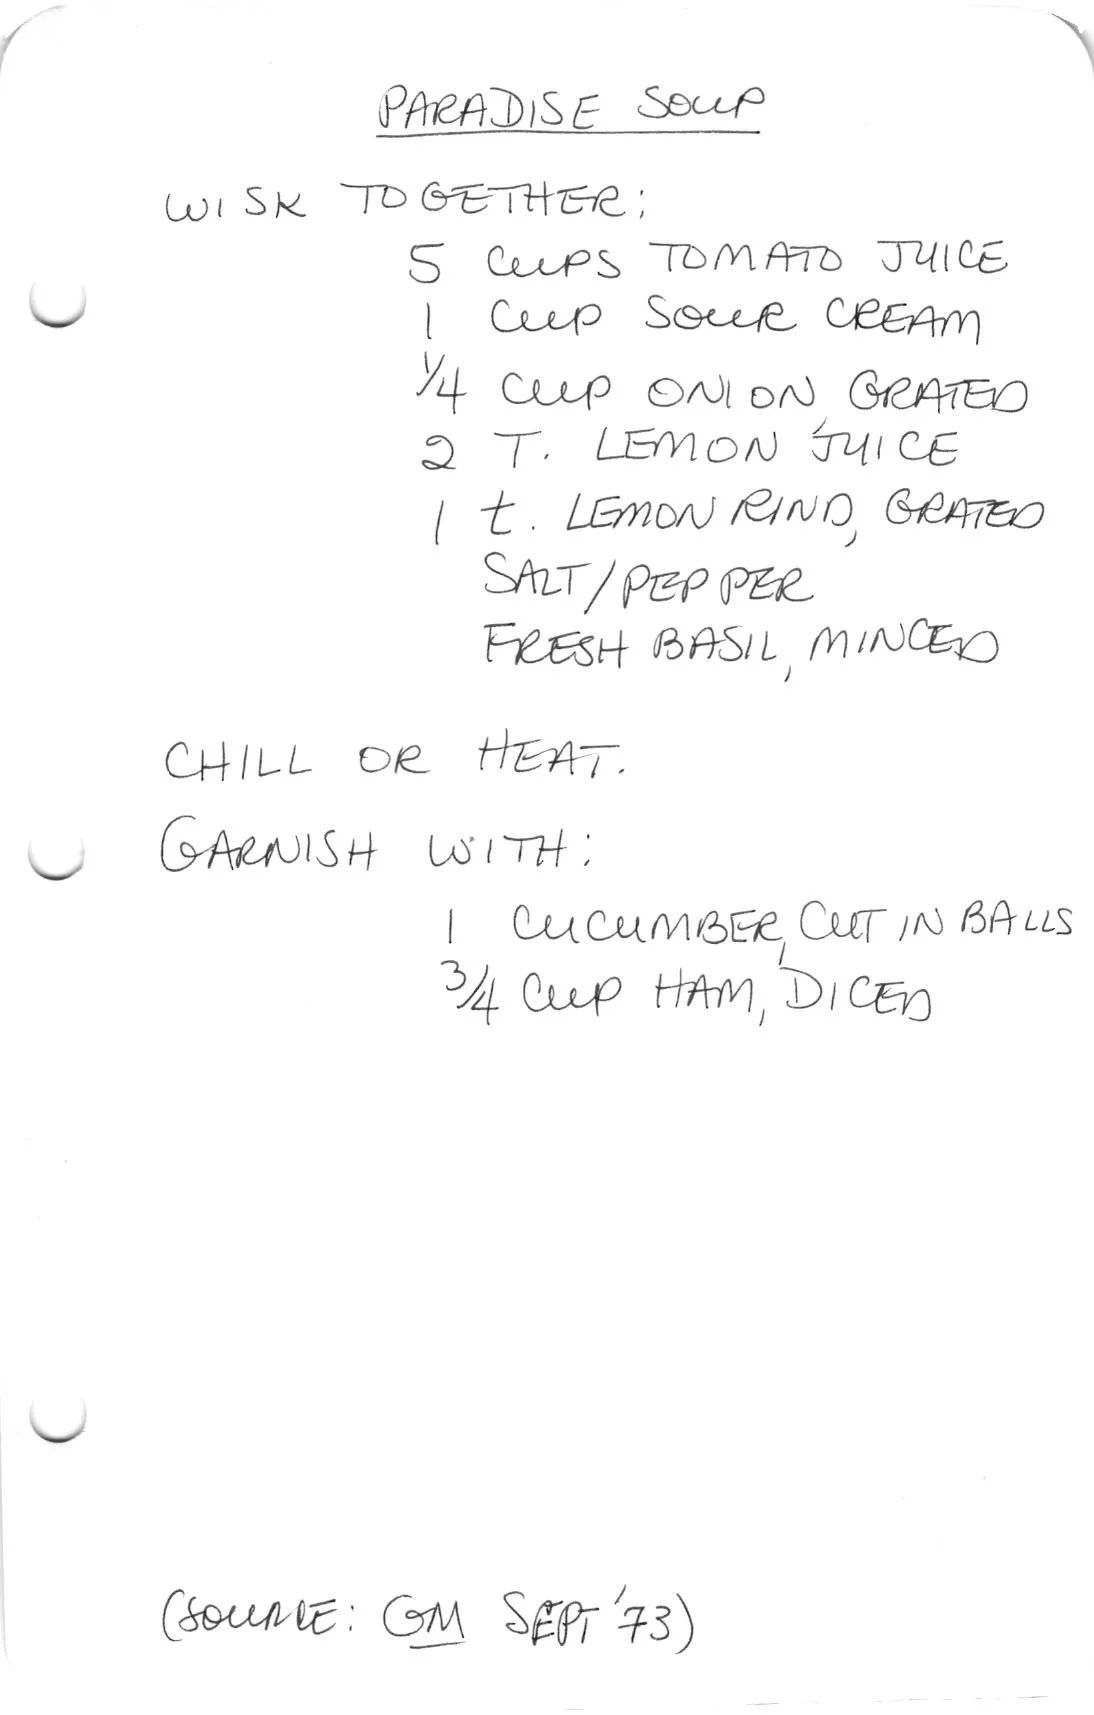 PARADISE SOUP
WISK TOGETHER:
5 CUPS TOMATO JUICE
1 CUP SOUR CREAM
1/4 CUP ONION, GRATED
2 T. LEMON JUICE
1 t. LEMON RIND, GRATED
SALT/PEPPER
FRESH BASIL, MINCED
CHILL OR HEAT.
GARNISH WITH:
1 CUCUMBER, CUT IN BALLS
3/4 CUP HAM, DICED
(SOURCE: GM SEPT '73)